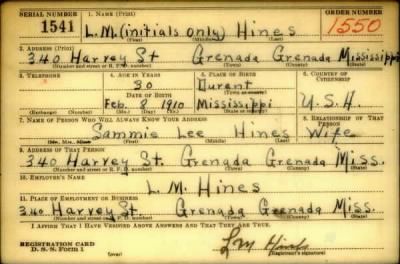 SERIAL NUMBER 1. NAME (Print) ORDER NUMBER
1541 L.M. (initials only) Hines 1550
(First) (Middle) (Last)
2. ADDRESS (Print)
340 Harvey St Grenada Grenada Mississippi
(Number and street or R. F. D. number) (Town) (County) (State)
3. TELEPHONE 4. AGE IN YEARS 5. PLACE OF BIRTH 6. COUNTRY OF CITIZENSHIP
30 Durant
DATE OF BIRTH (Town or county)
Feb. 8 1910 Mississippi U.S.A.
(Exchange) (Number) (Mo.) (Day) (Yr.) (State or country)
7. NAME OF PERSON WHO WILL ALWAYS KNOW YOUR ADDRESS 8. RELATIONSHIP OF THAT PERSON
Sammie Lee Hines Wife
(Mr., Mrs., Miss) (First) (Middle) (Last)
9. ADDRESS OF THAT PERSON
340 Harvey St. Grenada Grenada Miss.
(Number and street or R. F. D. number) (Town) (County) (State)
10. EMPLOYER'S NAME
L. M. Hines
11. PLACE OF EMPLOYMENT OR BUSINESS
340 Harvey St Grenada Grenada Miss.
(Number and street or R. F. D. number) (Town) (County) (State)
I AFFIRM THAT I HAVE VERIFIED ABOVE ANSWERS AND THAT THEY ARE TRUE.
REGISTRATION CARD
D. S. S. Form 1
(over)
L M Hines
(Registrant's signature)